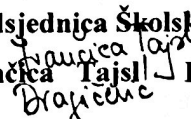 dsjednica Školsk
Franjica Tajsl
nčica Tajsl
Dragičević